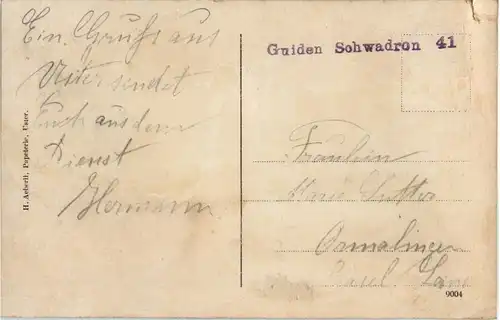 Ein Gruss aus
Uster sendet
Euch aus dem
Dienst
Hermann
H. Aeberli, Papeterie, Uster.
Guiden Schwadron 41
Fräulein
Sutter
Ormalingen
Basel Land
9004